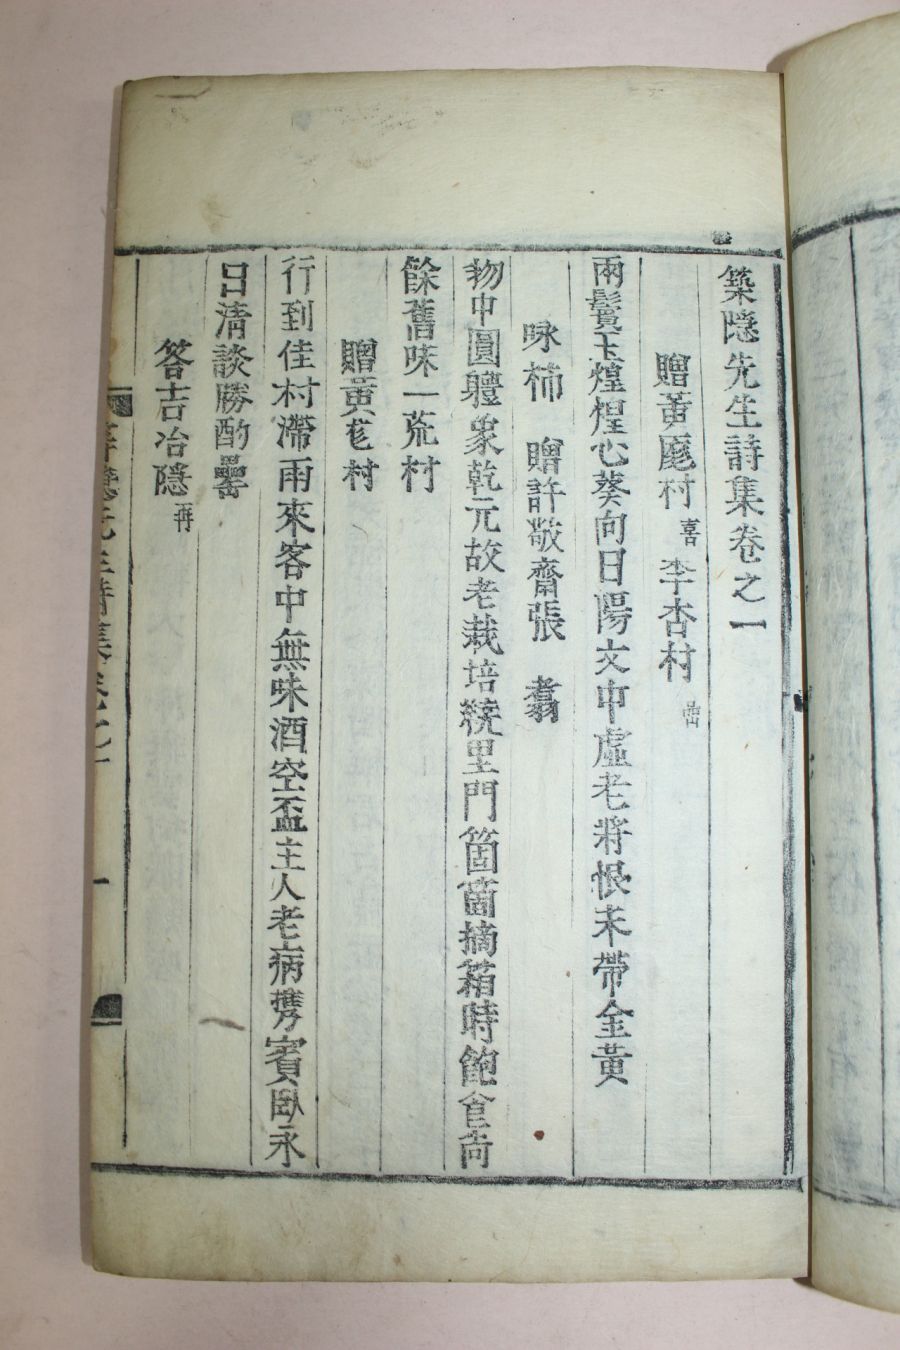 築隱先生詩集卷之一
贈黃厖村喜李杏村
兩鬢玉煌煌心葵向日陽文中虛老將恨未帶金黃
咏柿贈許敬齋張翥
物中圓軆象乾元故老栽培繞里門箇箇摘箱時飽食尚
餘舊味一荒村
贈黃厖村
行到佳村滯雨來客中無味酒空盃主人老病携賓臥永
日清談勝酌罍
答吉冶隱再
築隱先生詩集卷之一 一